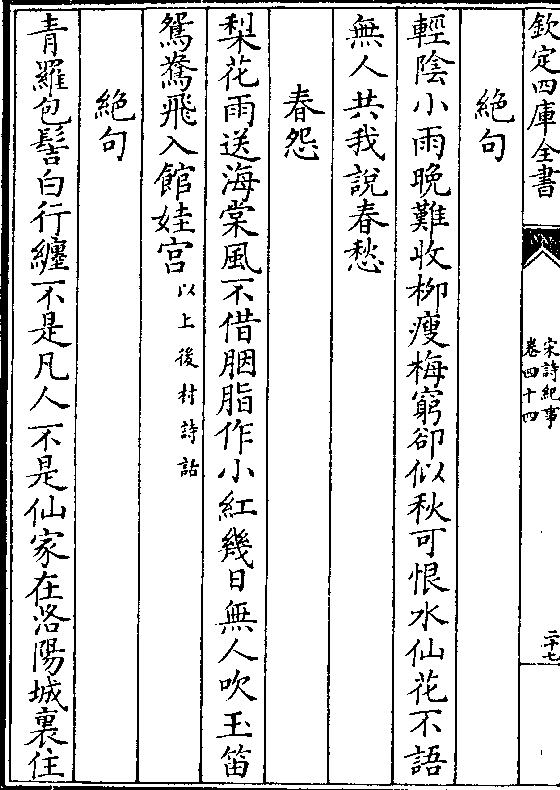 欽定四庫全書
宋詩紀事
卷四十四
二十七
絶句
輕陰小雨晚難收柳瘦梅窮卻似秋可恨水仙花不語
無人共我說春愁
春怨
梨花雨送海棠風不借胭脂作小紅幾日無人吹玉笛
鴛鴦飛入館娃宮以上後村詩話
絶句
青羅包髻白行纏不是凡人不是仙家在洛陽城裏住